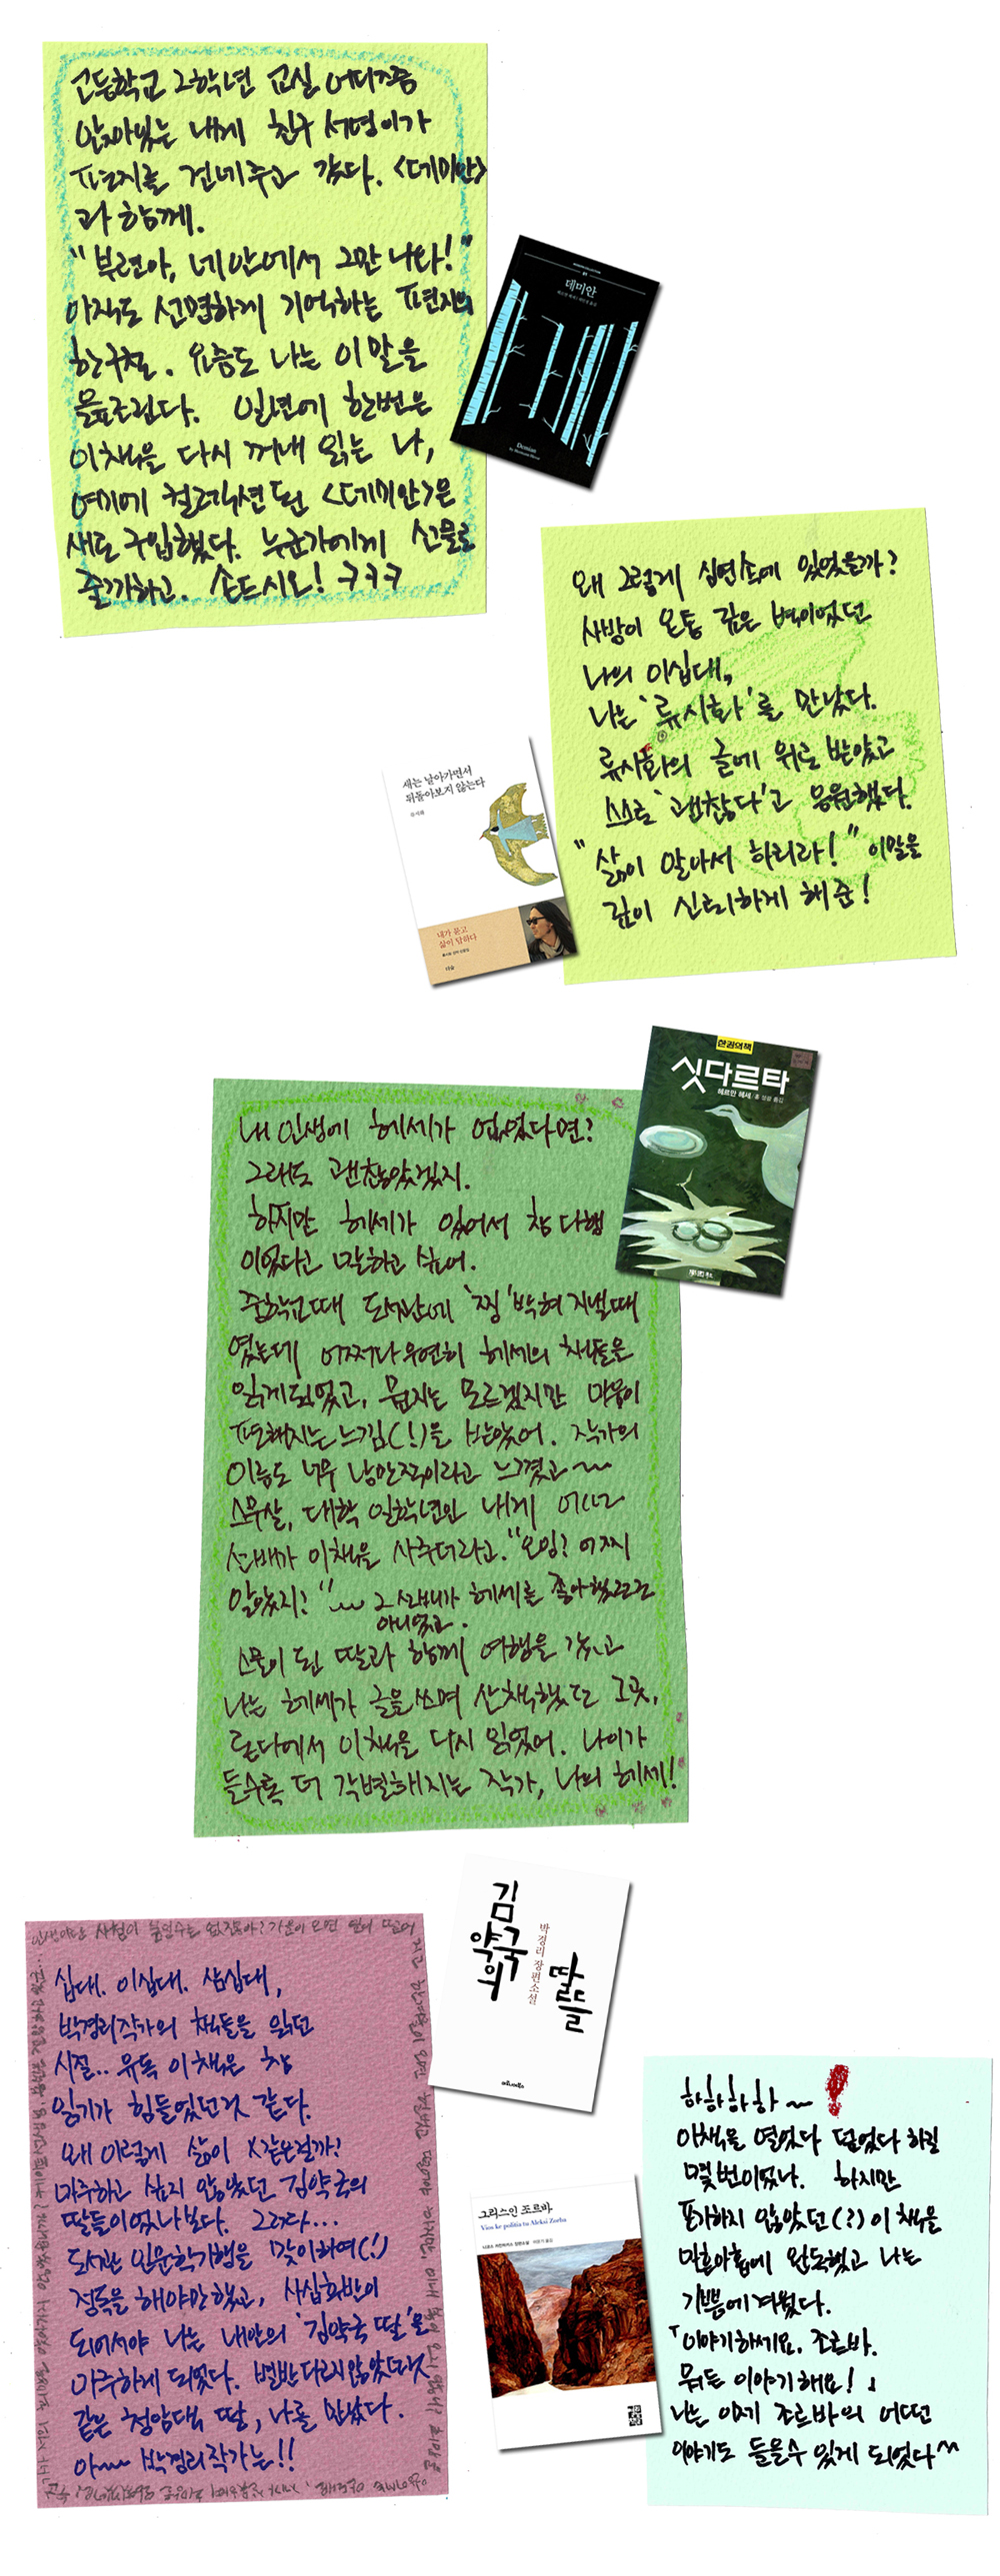 고등학교 2학년 교실 어디쯤
앉아있는 내게 친구 서영이가
편지를 건네주고 갔다. <데미안>
과 함께.
"부련아, 네 안에서 그만 나와!"
아직도 선명하게 기억하는 편지의
한구절. 요즘도 나는 이 말을
읊조린다. 일년에 한번은
이책을 다시 꺼내 읽는 나,
컬렉션된 <데미안>은
새로 구입했다. 누군가에게 선물로
줄까하고. 손드시오! ㅋㅋㅋ
데미안
Demian
by Hermann Hesse
왜 그렇게 심연속에 있었을까?
사방이 온통 깊은 벽이었던
나의 이십대,
나는 '류시화'를 만났다.
류시화의 글에 위로 받았고
스스로 '괜찮다'고 응원했다.
"삶이 알아서 하리라!" 이말을
깊이 신뢰하게 해 준!
새는 날아가면서
뒤돌아보지 않는다
류시화
내가 묻고
삶이 답하다
더숲
한권의책
싯다르타
헤르만 헤세/홍 옮김
내 인생에 헤세가 없었다면?
그래도 괜찮았겠지.
하지만 헤세가 있어서 참 다행
이었다고 말하고 싶어.
중학교때 도서관에 '찡' 박혀 지낼때
였는데 어쩌다 우연히 헤세의 책들을
읽게되었고, 뭔지는 모르겠지만 마음이
편해지는 느낌(!)을 받았어. 작가의
이름도 너무 낭만적이라고 느꼈고~
스무살, 대학 일학년인 내게 어느
선배가 이책을 사주더라고. "오잉? 어찌
알았지?"~ 그 선배가 헤세를 좋아했고
아니었고.
스물이 된 딸과 함께 여행을 갔고
나는 헤세가 글을 쓰며 산책했던 그곳,
론다에서 이책을 다시 읽었어. 나이가
들수록 더 각별해지는 작가, 나의 헤세!
김약국의 딸들
박경리 장편소설
십대. 이십대. 삼십대,
박경리작가의 책들을 읽던
시절.. 유독 이책은 참
읽기가 힘들었던것 같다.
왜 이렇게 삶이 X같은걸까?
마주하고 싶지 않았던 김약국의
딸들이었나보다. 그러다...
도서관 인문학기행을 맞이하여(!)
정독을 해야만했고, 사십화반이
되어서야 나는 내안의 '김약국 딸'을
마주하게 되었다. 별반다르지않았던것
같은 청암댁 딸, 나를 만났다.
아~ 박경리작가는!!
그리스인 조르바
Vios ke politia tu Aleksi Zorba
니코스 카잔차키스 장편소설 이윤기 옮김
하하하하~!
이책을 열었다 덮었다 하길
몇번이었나. 하지만
포기하지 않았던(?) 이 책을
마흔아홉에 완독했고 나는
기쁨에 겨웠다.
「이야기하세요. 조르바.
뭐든 이야기해요!」
나는 이제 조르바의 어떤
이야기도 들을수 있게 되었다^^